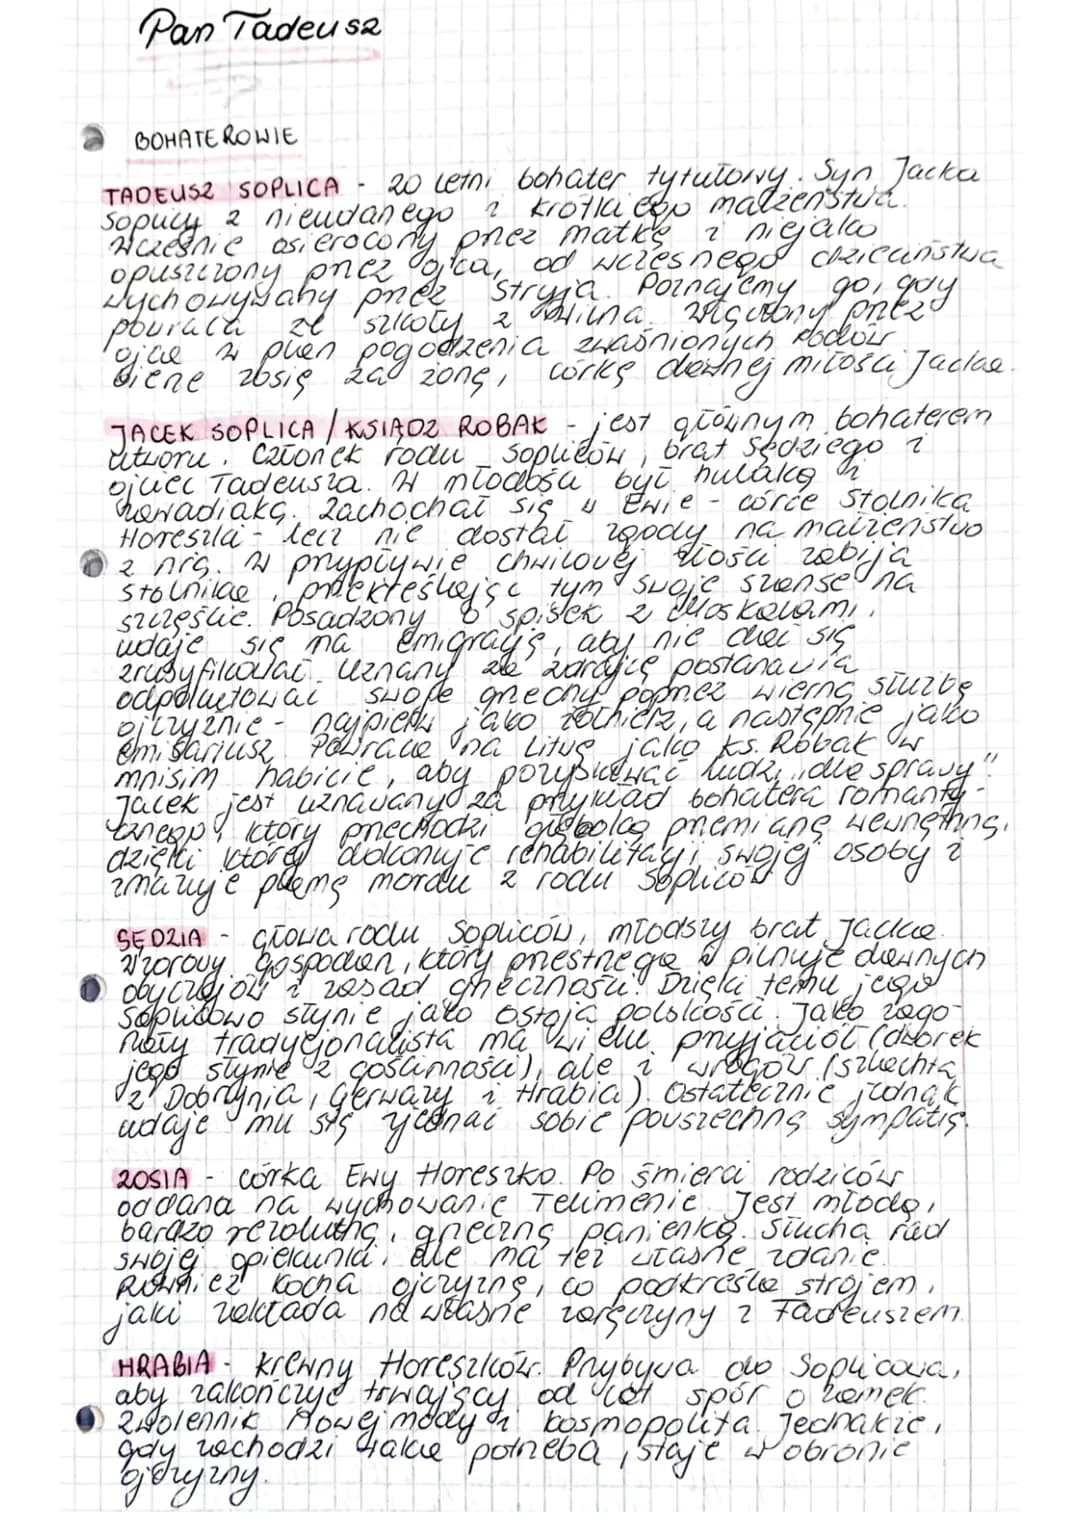 Pan Tadeusz
BOHATEROWIE
TADEUSZ SOPLICA - 20 letni bohater tytułowy. Syn Jacka
Soplicy z nieudanego i krótkiego małżeństwa.
Wcześnie osierocony przez matkę i niejako
opuszczony przez ojca, od wczesnego dzieciństwa
wychowywany przez stryja. Poznajemy go, gdy
powraca ze szkoły z Wilna. Włączony przez
ojca w plan pogodzenia zwaśnionych rodów
bierze Zosię za żonę, córkę dawnej miłości Jacka.
JACEK SOPLICA / KSIĄDZ ROBAK - jest głównym bohaterem
utworu. Członek rodu Sopliców, brat Sędziego i
ojciec Tadeusza. W młodości był hulaką i
zawadiaką. Zachochał się w Ewie - córce Stolnika
Horeszki - lecz nie dostał zgody na małżeństwo
z nią. W przypływie chwilowej złości zabija
stolnika, przekreślając tym swoje szanse na
szczęście. Posądzony o spisek z Moskalami,
udaje się na emigrację, aby nie dać się
zrusyfikować. Uznany za zdrajcę postanawia
odpokutować swoje grzechy poprzez wierną służbę
ojczyźnie - najpierw jako żołnierz, a następnie jako
emisariusz. Powraca na Litwę jako ks. Robak w
mnisim habicie, aby pozyskiwać ludzi „dla sprawy".
Jacek jest uznawany za przykład bohatera romanty-
cznego, który przechodzi głęboką przemianę wewnętrzną,
dzięki której dokonuje rehabilitacji swojej osoby i
zmazuje plamę mordu z rodu Sopliców
SĘDZIA - głowa rodu Sopliców, młodszy brat Jacka.
Wzorowy gospodarz, który przestrzega i pilnuje dawnych
obyczajów i zasad grzeczności. Dzięki temu jego
Soplicowo słynie jako ostoja polskości. Jako zago-
rzały tradycjonalista ma wielu przyjaciół (dworek
jego słynie z gościnności), ale i wrogów (szlachta
z Dobrzynia, Gerwazy i Hrabia). Ostatecznie jednak
udaje mu się zjednać sobie powszechną sympatię.
ZOSIA - córka Ewy Horeszko. Po śmierci rodziców
oddana na wychowanie Telimenie. Jest młodą,
bardzo rezolutną, grzeczną panienką. Słucha rad
swojej opiekunki, ale ma też własne zdanie.
Również kocha ojczyznę, co podkreśla strojem,
jaki zakłada na własne zaręczyny z Tadeuszem.
HRABIA - krewny Horeszków. Przybywa do Soplicowa,
aby zakończyć trwający od lat spór o zamek.
Zwolennik nowej mody i kosmopolita. Jednakże,
gdy zachodzi taka potrzeba, staje w obronie
ojczyzny.